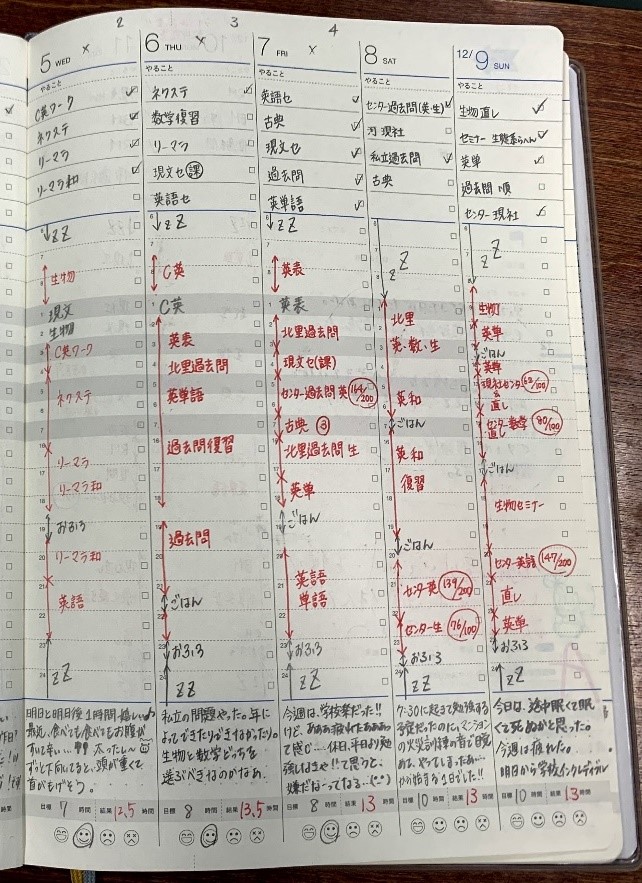 2
3
4
5 WED ×
やること
C英ワーク
ネクステ
リーマラ
リーマラ和
zZ
生物
現文
生物
C英ワーク
ネクステ
リーマラ
リーマラ和
おふろ
リーマラ和
英語
zZ
明日と明後日1時間
最近、食べても食べてもお腹が
ずっと下向いてると、頭が重くて
首がもげそう。
目標 7 時間 結果 12.5 時間
6 THU ×
やること
ネクステ
数学復習
リーマラ
現文セ 課
英語セ
zZ
C英
C英
英表
北里過去問
英単語
過去問復習
過去問
ごはん
おふろ
zZ
私立の問題やった。年に
よってできたりできなかったり。
生物と数学どっちを
選ぶべきなのかなぁ
目標 8 時間 結果 13.5 時間
7 FRI ×
やること
英語セ
古典
現文セ
過去問
英単語
zZ
英表
英表
北里過去問
現文セ(課)
センター過去問 英 164/200
古典 ③
北里過去問 生
英単
ごはん
英語
単語
おふろ
zZ
今週は、学校楽だった!!
けど、
って感じ…休日、平日より勉
強しなきゃ!!て思うと、
嫌だなーってなる…
目標 8 時間 結果 13 時間
8 SAT
やること
センター過去問(英・生)
現社
私立過去問
古典
zZ
北里
英・数・生
英和
ごはん
英和
復習
ごはん
センター英 139/200
センター生 76/100
おふろ
zZ
7:30に起きて勉強する
予定だったのに、マンション
の火災訓練の音で目覚
めて、やってしまったあ…
から始まる1日でした!!
目標 10 時間 結果 13 時間
12/9 SUN
やること
生物直し
セミナー 生態系らへん
英単
過去問 順
センター現社
zZ
生物
英単
ごはん
英単
現社センター 62/100
&
直し
センター数学 80/100
直し
ごはん
生物セミナー
センター英語 147/200
直し
英単
ごはん
おふろ
zZ
今日は、途中眠くて眠
くて死ぬかと思った。
今週は疲れた。
明日から学校インクレディブル
目標 10 時間 結果 13 時間